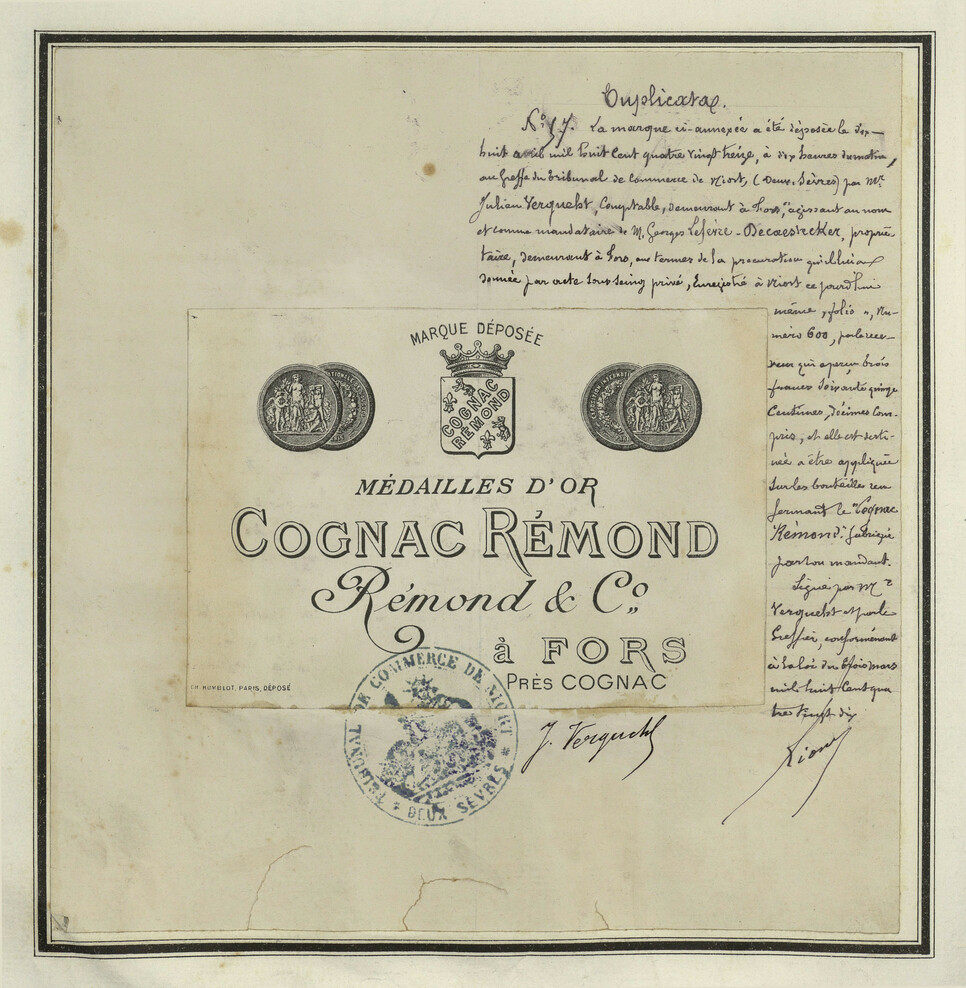 Duplicata.
No 17. La marque ci-annexée a été déposée le dix-
huit avril mil huit cent quatre vingt treize, à dix heures du matin,
au Greffe du Tribunal de Commerce de Niort, (Deux-Sèvres) par Mr
Julien Verqueht, Comptable, demeurant à Fors, agissant au nom
et comme mandataire de M. Georges Lefebre-Decaesteker, proprié-
taire, demeurant à Fors, aux termes de la procuration qu'il lui a
donnée par acte sous seing privé, Enregistré à Niort ce jourd'hui
même, folio ", Nu-
méro 600, par le rece-
veur qui a perçu trois
francs soixante quinze
Centimes, décimes com-
pris, et elle est desti-
née à être appliquée
sur les bouteilles ren
fermant le "Cognac
Rémond" fabriqué
par son mandant.
Signé par Mr
Verqueht et par le
Greffier, conformément
à la loi du trois mars
mil huit cent qua
tre vingt dix
MARQUE DÉPOSÉE
COGNAC
RÉMOND
MÉDAILLES D'OR
COGNAC RÉMOND
Rémond & Co.,,
à FORS
PRÈS COGNAC
CH. HUMBLOT, PARIS, DÉPOSÉ
TRIBUNAL DE COMMERCE DE NIORT
* DEUX SÈVRES *
J. Verqueht